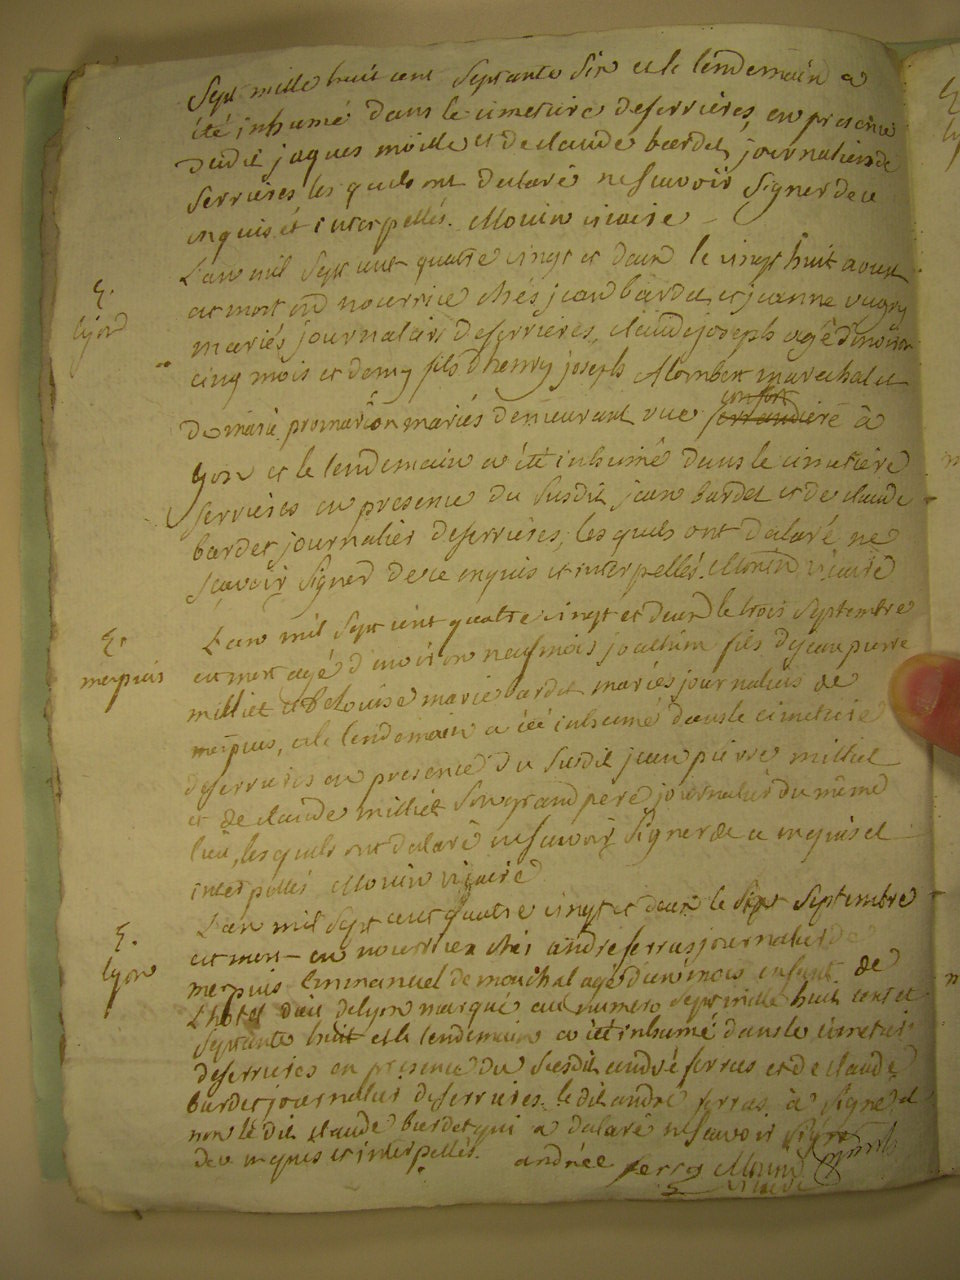 Sept mille huit cent septante six et le lendemain a
été inhumé dans le cimetiere deserrières, en presence
dudit jaques moille et de claude bardet, journaliers de
serrieres les quels ont declaré ne scavoir signer de ce
enquis et interpellés. Monin vicaire
L'an mil sept cent quatre vingt et deux le vingt huit aoust
est mort en nourrice chés jean bardet et jeanne vugny
E.
lyon
mariés journaliers deserrieres, claude joseph agé denviron
cinq mois et demy fils d'henry joseph Alombert marechal et
de marie promarion mariés demeurant rue confort ferrandiere à
lyon et le lendemain a été inhumé dans le cimetière
serrieres en presence du susdit jean bardet et de claude
bardet journalier deserrieres, les quels ont declaré ne
scavoir signer de ce enquis et interpellés. Monin vicaire
L'an mil sept cent quatre vingt et deux le trois septembre
E.
mepuis
est mort agé d'environ neuf mois joachim fils de jean pierre
milliet et de Louise marie bardet mariés journaliers de
mepuis, et le lendemain a été inhumé dans le cimetiere
deserrieres en presence du susdit jean pierre milliet
et de claude milliet son grand pere journalier du même
lieu, les quels ont declaré ne scavoir signer de ce enquis et
interpellés Monin vicaire
L'an mil sept cent quatre vingt et deux le sept septembre
E.
lyon
est mort en nourrice chés andré ferras journalier de
mepuis Emmanuel de monchal agé d'un mois enfant de
L'hotel dieu de lyon marqué au numero sept mille huit cent et
septante huit et le lendemain a été inhumé dans le cimetier
deserrieres en presence du susdit andré ferras et de claude
bardet journalier deserrieres. le dit andré ferras à signé et
non le dit claude bardet qui a declaré ne scavoir signer
de ce enquis et interpellés. andrée ferras Monin
vicaire